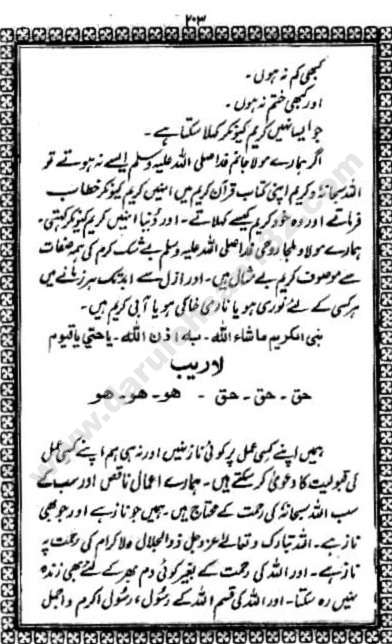 ۲۰۳
کبھی کم نہ ہوں۔
اور کبھی ختم نہ ہوں۔
جو ایسا نہیں کریم کیونکر کہلا سکتا ہے۔
اگر ہمارے مولا خاتم فدا صلی اللہ علیہ وسلم ایسے نہ ہوتے تو
اللہ سبحانہٗ و کریم اپنی کتاب قرآن کریم میں انہیں کریم کیونکر خطاب
فرماتے اور وہ خود کریم کیسے کہلاتے۔ اور دُنیا انہیں کریم کیونکر کہتی۔
ہمارے مولا و ملجا روحی فدا صلی اللہ علیہ وسلم بے شک کرم کی ہر صفات
سے موصوف کریم بے مثال ہیں۔ اور ازل سے ابد تک ہر زمانے میں
ہر کسی کے لئے نوری ہو یا ناری خاکی ہو یا آبی کریم ہیں۔
نبی الکریم ماشاء اللہ۔ اذن اللہ۔ یاحیی یاقیوم
لاریب
حق۔ حق۔ حق ۔ ھو۔ ھو۔ ھو
ہمیں اپنے کسی عمل پر کوئی ناز نہیں اور نہ ہی ہم اپنے کسی عمل
کی قبولیت کا دعویٰ کر سکتے ہیں۔ ہمارے اعمال ناقص اور سب کے
سب اللہ سبحانہٗ کی رحمت کے محتاج ہیں۔ ہمیں جو ناز ہے اور جو بھی
ناز ہے۔ اللہ تبارک و تعالےٰ عزوجل ذوالجلال والاکرام کی رحمت پہ
ناز ہے۔ اور اللہ کی رحمت کے بغیر کوئی دم بھر کے لئے بھی زندہ
نہیں رہ سکتا۔ اور اللہ کی قسم اللہ کے رسولؐ، رسول اکرم و اجمل